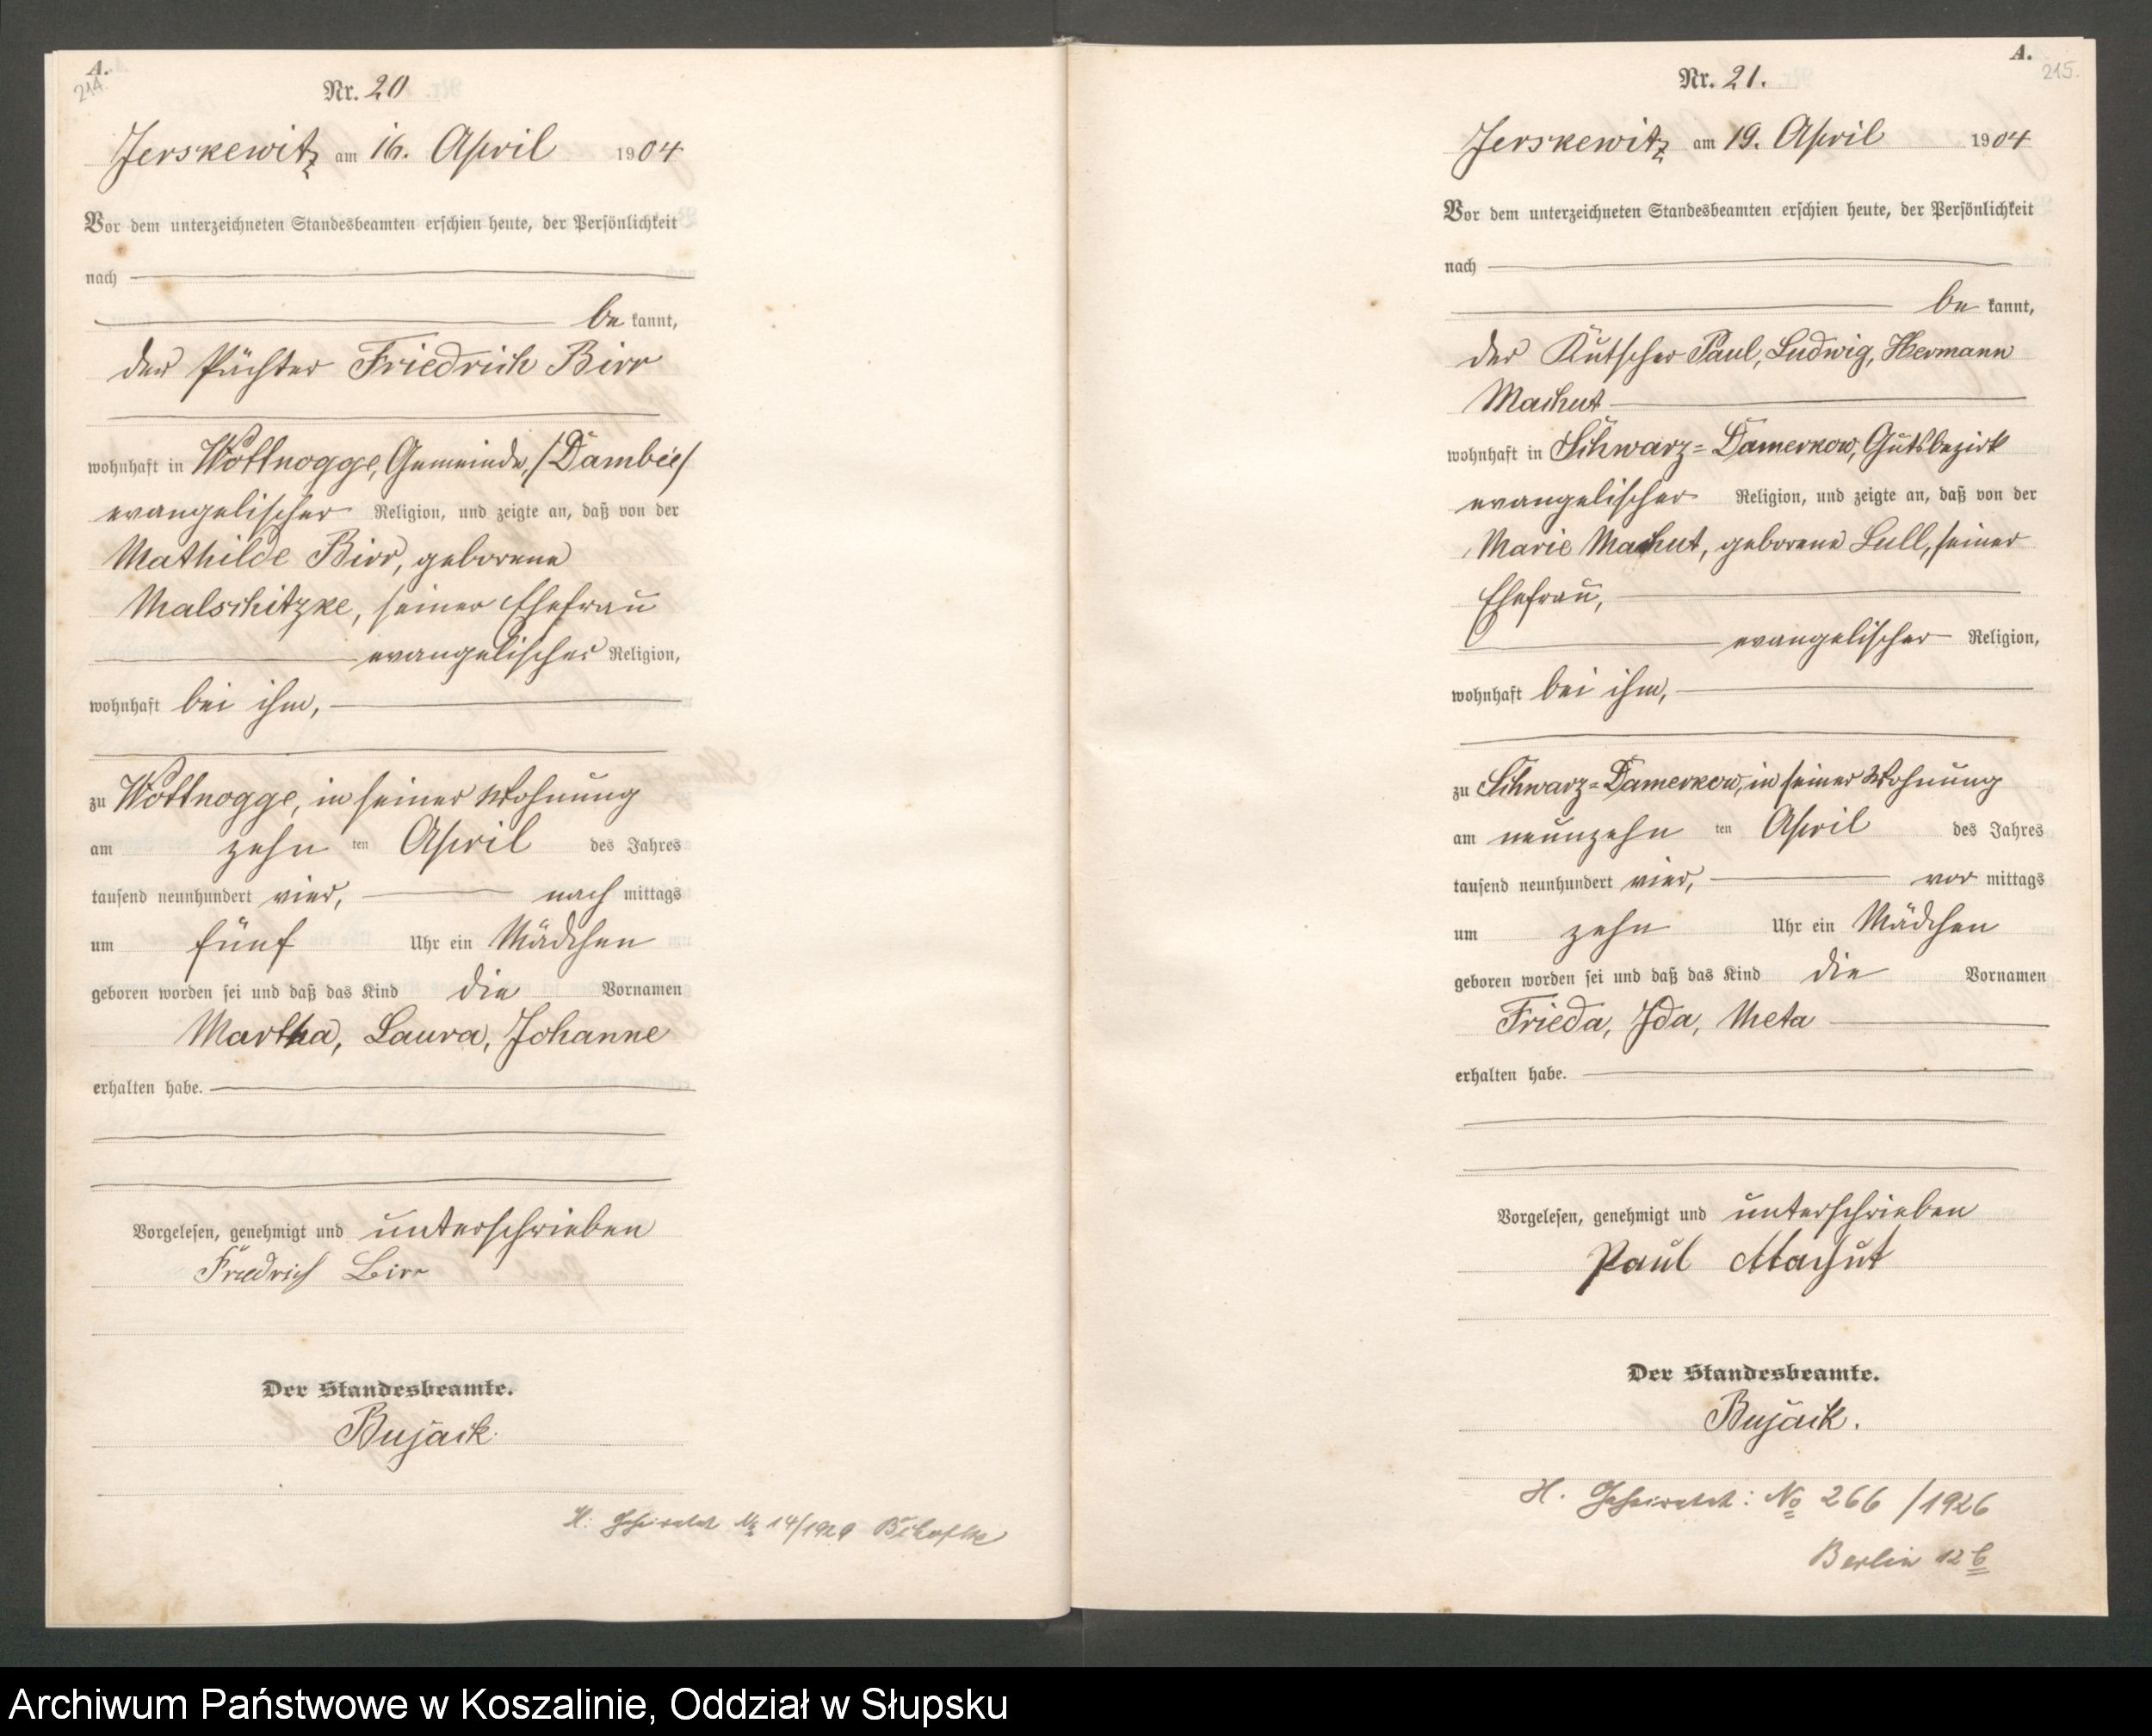 A.
214.
Nr. 20
Jerskewitz am 16. April 1904
Vor dem unterzeichneten Standesbeamten erschien heute, der Persönlichkeit
nach
be kannt,
der Pächter Friedrich Birr
wohnhaft in Wottnogge, Gemeinde, /Dambee/
evangelischer Religion, und zeigte an, daß von der
Mathilde Birr, geborene
Malschitzke, seiner Ehefrau
evangelischer Religion,
wohnhaft bei ihm,
zu Wottnogge, in seiner Wohnung
am zehn ten April des Jahres
tausend neunhundert vier, nach mittags
um fünf Uhr ein Mädchen
geboren worden sei und daß das Kind die Vornamen
Martha, Laura, Johanne
erhalten habe.
Vorgelesen, genehmigt und unterschrieben
Friedrich Birr
Der Standesbeamte.
Bujack.
H. Geheiratet No 14/1929
A.
215.
Nr. 21.
Jerskewitz am 19. April 1904
Vor dem unterzeichneten Standesbeamten erschien heute, der Persönlichkeit
nach
be kannt,
der Kutscher Paul, Ludwig, Hermann
Machut
wohnhaft in Schwarz=Damerkow, Gutsbezirk
evangelischer Religion, und zeigte an, daß von der
Marie Machut, geborene Lull, seiner
Ehefrau,
evangelischer Religion,
wohnhaft bei ihm,
zu Schwarz=Damerkow, in seiner Wohnung
am neunzehn ten April des Jahres
tausend neunhundert vier, vor mittags
um zehn Uhr ein Mädchen
geboren worden sei und daß das Kind die Vornamen
Frieda, Ida, Meta
erhalten habe.
Vorgelesen, genehmigt und unterschrieben
Paul Machut
Der Standesbeamte.
Bujack.
H. Geheiratet: No 266 /1926
Berlin 12 b
Archiwum Państwowe w Koszalinie, Oddział w Słupsku